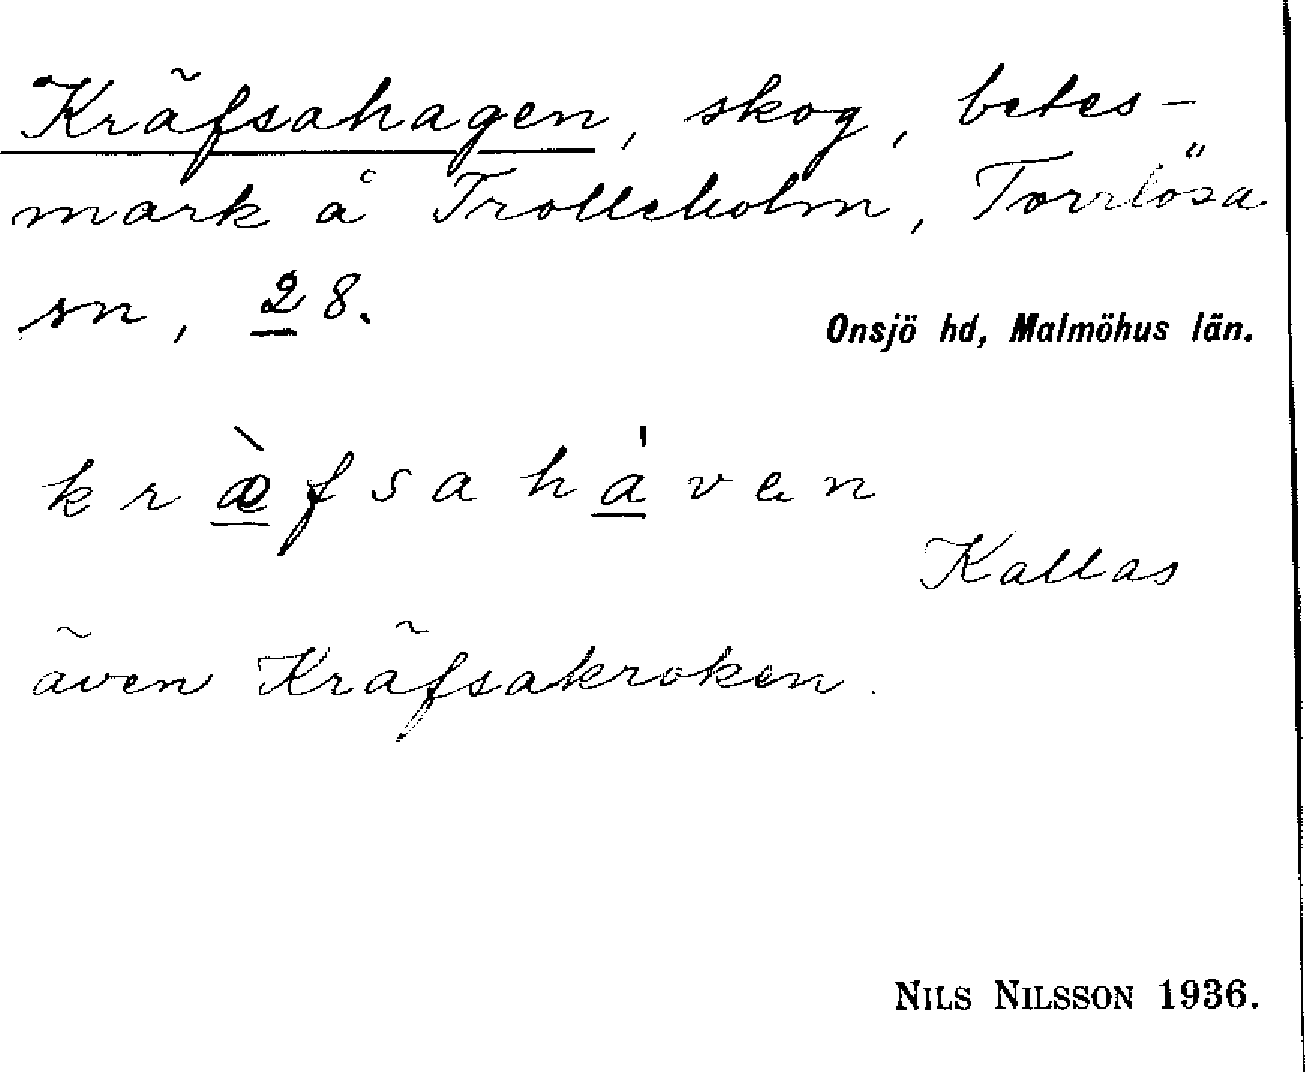 Kräfsahagen, skog, betes-
mark å Trolleholm, Torrlösa
sn, 28.
Onsjö hd, Malmöhus län.
kræ̀fsaháven
Kallas
även Kräfsakroken.
NILS NILSSON 1936.